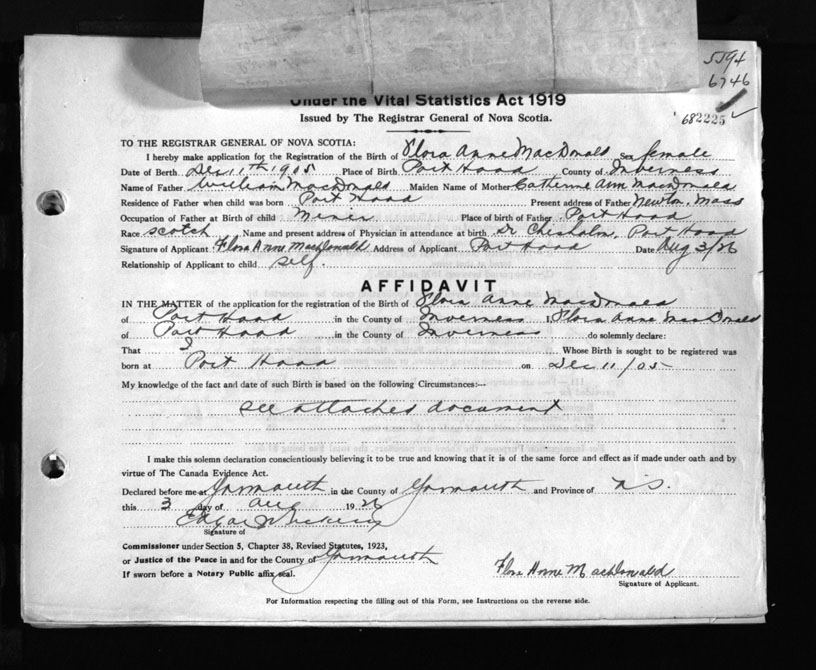 5594
6746
Under the Vital Statistics Act 1919
Issued by The Registrar General of Nova Scotia.
682225
TO THE REGISTRAR GENERAL OF NOVA SCOTIA:
I hereby make application for the Registration of the Birth of Flora Anne MacDonald Sex female
Date of Berth Dec 11th 1905 Place of Birth Port Hood County of Inverness
Name of Father William MacDonald Maiden Name of Mother Catherine Ann MacDonald
Residence of Father when child was born Port Hood Present address of Father Newton, Mass
Occupation of Father at Birth of child Miner Place of birth of Father Port Hood
Race Scotch Name and present address of Physician in attendance at birth Dr Chisholm, Port Hood
Signature of Applicant Flora Anne MacDonald Address of Applicant Port Hood Date Aug 3/26
Relationship of Applicant to child self.
AFFIDAVIT
IN THE MATTER of the application for the registration of the Birth of Flora Anne MacDonald
of Port Hood in the County of Inverness I Flora Anne MacDonald
of Port Hood in the County of Inverness do solemnly declare:
That I Whose Birth is sought to be registered was
born at Port Hood on Dec 11/05
My knowledge of the fact and date of such Birth is based on the following Circumstances:—
see attached document
I make this solemn declaration conscientiously believing it to be true and knowing that it is of the same force and effect as if made under oath and by
virtue of The Canada Evidence Act.
Declared before me at Yarmouth in the County of Yarmouth and Province of N.S.
this 3 day of Aug 1926
Edgar
Signature of
Commissioner under Section 5, Chapter 38, Revised Statutes, 1923,
or Justice of the Peace in and for the County of Yarmouth
If sworn before a Notary Public affix seal.
Flora Anne MacDonald
Signature of Applicant.
For Information respecting the filling out of this Form, see Instructions on the reverse side.